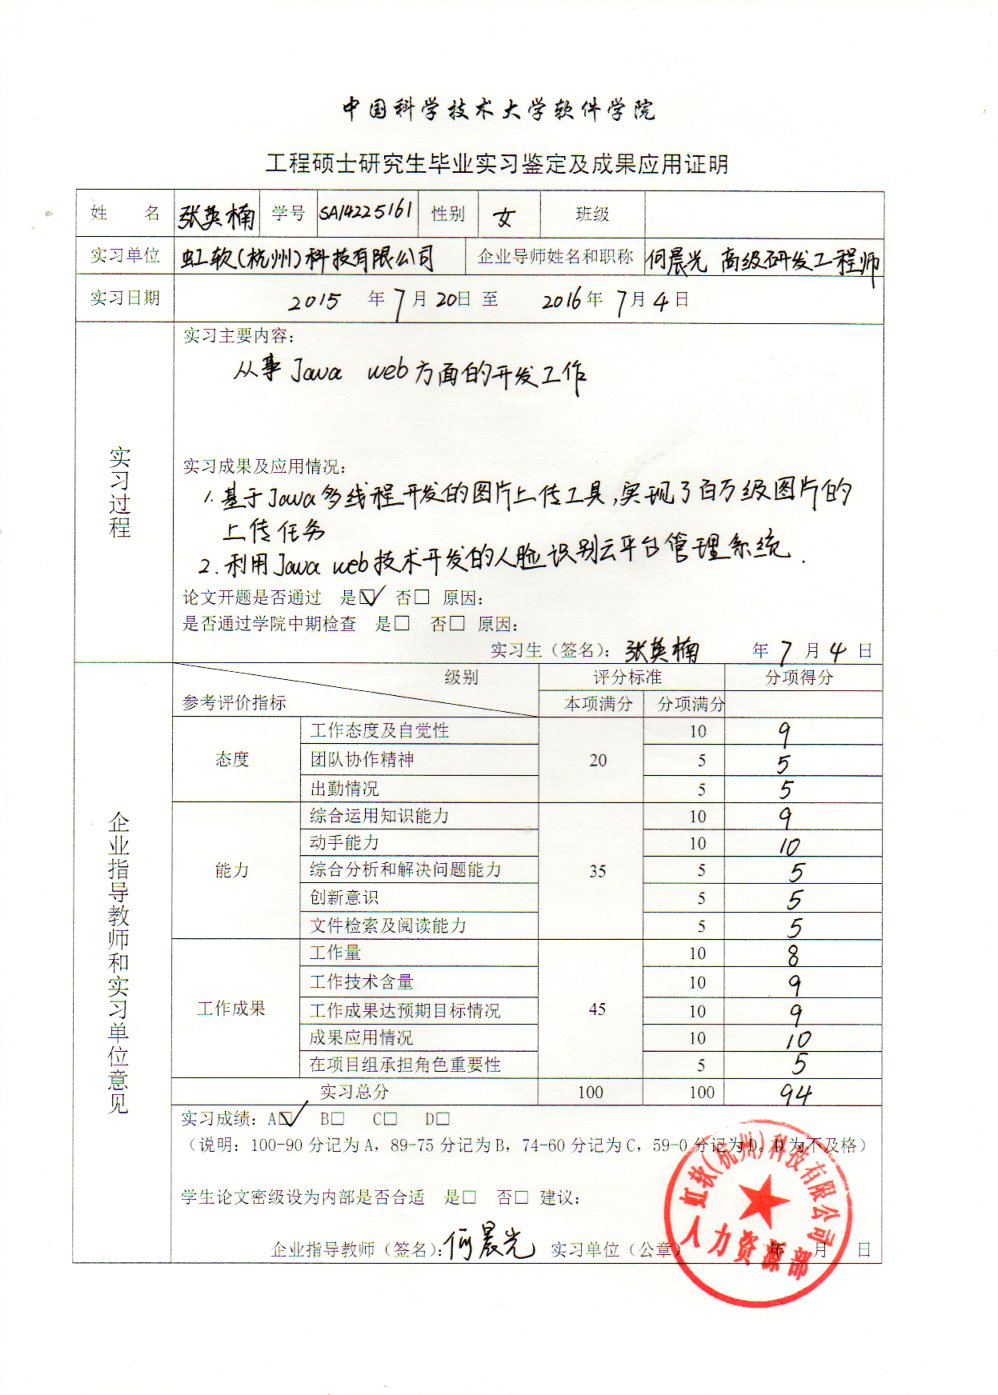 中国科学技术大学软件学院
工程硕士研究生毕业实习鉴定及成果应用证明
姓 名 张英楠 学号 SA14225161 性别 女 班级
实习单位 虹软(杭州)科技有限公司 企业导师姓名和职称 何晨光 高级研发工程师
实习日期 2015 年 7 月 20 日 至 2016 年 7 月 4 日
实习过程
实习主要内容:
从事 Java web 方面的开发工作
实习成果及应用情况:
1. 基于Java多线程开发的图片上传工具,实现了百万级图片的
上传任务
2. 利用Java web技术开发的人脸识别云平台管理系统.
论文开题是否通过 是☑ 否□ 原因:
是否通过学院中期检查 是□ 否□ 原因:
实习生(签名): 张英楠 年 7 月 4 日
企业指导教师和实习单位意见
级别 评分标准 分项得分
参考评价指标 本项满分 分项满分
态度 20
工作态度及自觉性 10 9
团队协作精神 5 5
出勤情况 5 5
能力 35
综合运用知识能力 10 9
动手能力 10 10
综合分析和解决问题能力 5 5
创新意识 5 5
文件检索及阅读能力 5 5
工作成果 45
工作量 10 8
工作技术含量 10 9
工作成果达预期目标情况 10 9
成果应用情况 10 10
在项目组承担角色重要性 5 5
实习总分 100 100 94
实习成绩: A☑ B□ C□ D□
(说明: 100-90 分记为 A, 89-75 分记为 B, 74-60 分记为 C, 59-0 分记为 D, D 为不及格)
学生论文密级设为内部是否合适 是□ 否□ 建议:
企业指导教师(签名): 何晨光 实习单位(公章) 年 月 日
虹软(杭州)科技有限公司
人力资源部